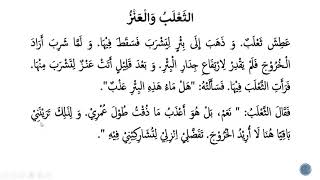 الثَّعْلَبُ وَالْعَنْزُ
عَطِشَ ثَعْلَبٌ. وَ ذَهَبَ إِلَى بِئْرٍ لِيَشْرَبَ فَسَقَطَ فِيْهَا. وَ لَمَّا شَرِبَ أَرَادَ
الْخُرُوْجَ فَلَمْ يَقْدِرْ لِارْتِفَاعِ جِدَارِ الْبِئْرِ. وَ بَعْدَ قَلِيْلٍ أَتَتْ عَنْزٌ لِتَشْرَبَ مِنْهَا.
فَرَأَتِ الثَّعْلَبَ فِيْهَا. فَسَأَلَتْهُ: "هَلْ مَاءُ هَذِهِ الْبِئْرِ عَذْبٌ".
فَقَالَ الثَّعْلَبُ: " نَعَمْ، بَلْ هُوَ أَعْذَبُ مَا ذُقْتُ طُوْلَ عُمْرِيْ. وَ لِذَلِكَ تَرَيْنَنِيْ
بَاقِيًا هُنَا لَا أُرِيْدُ الْخُرُوْجَ. تَفَضَّلِيْ اِنْزِلِيْ لِتُشَارِكِيْنِيْ فِيْهِ ".